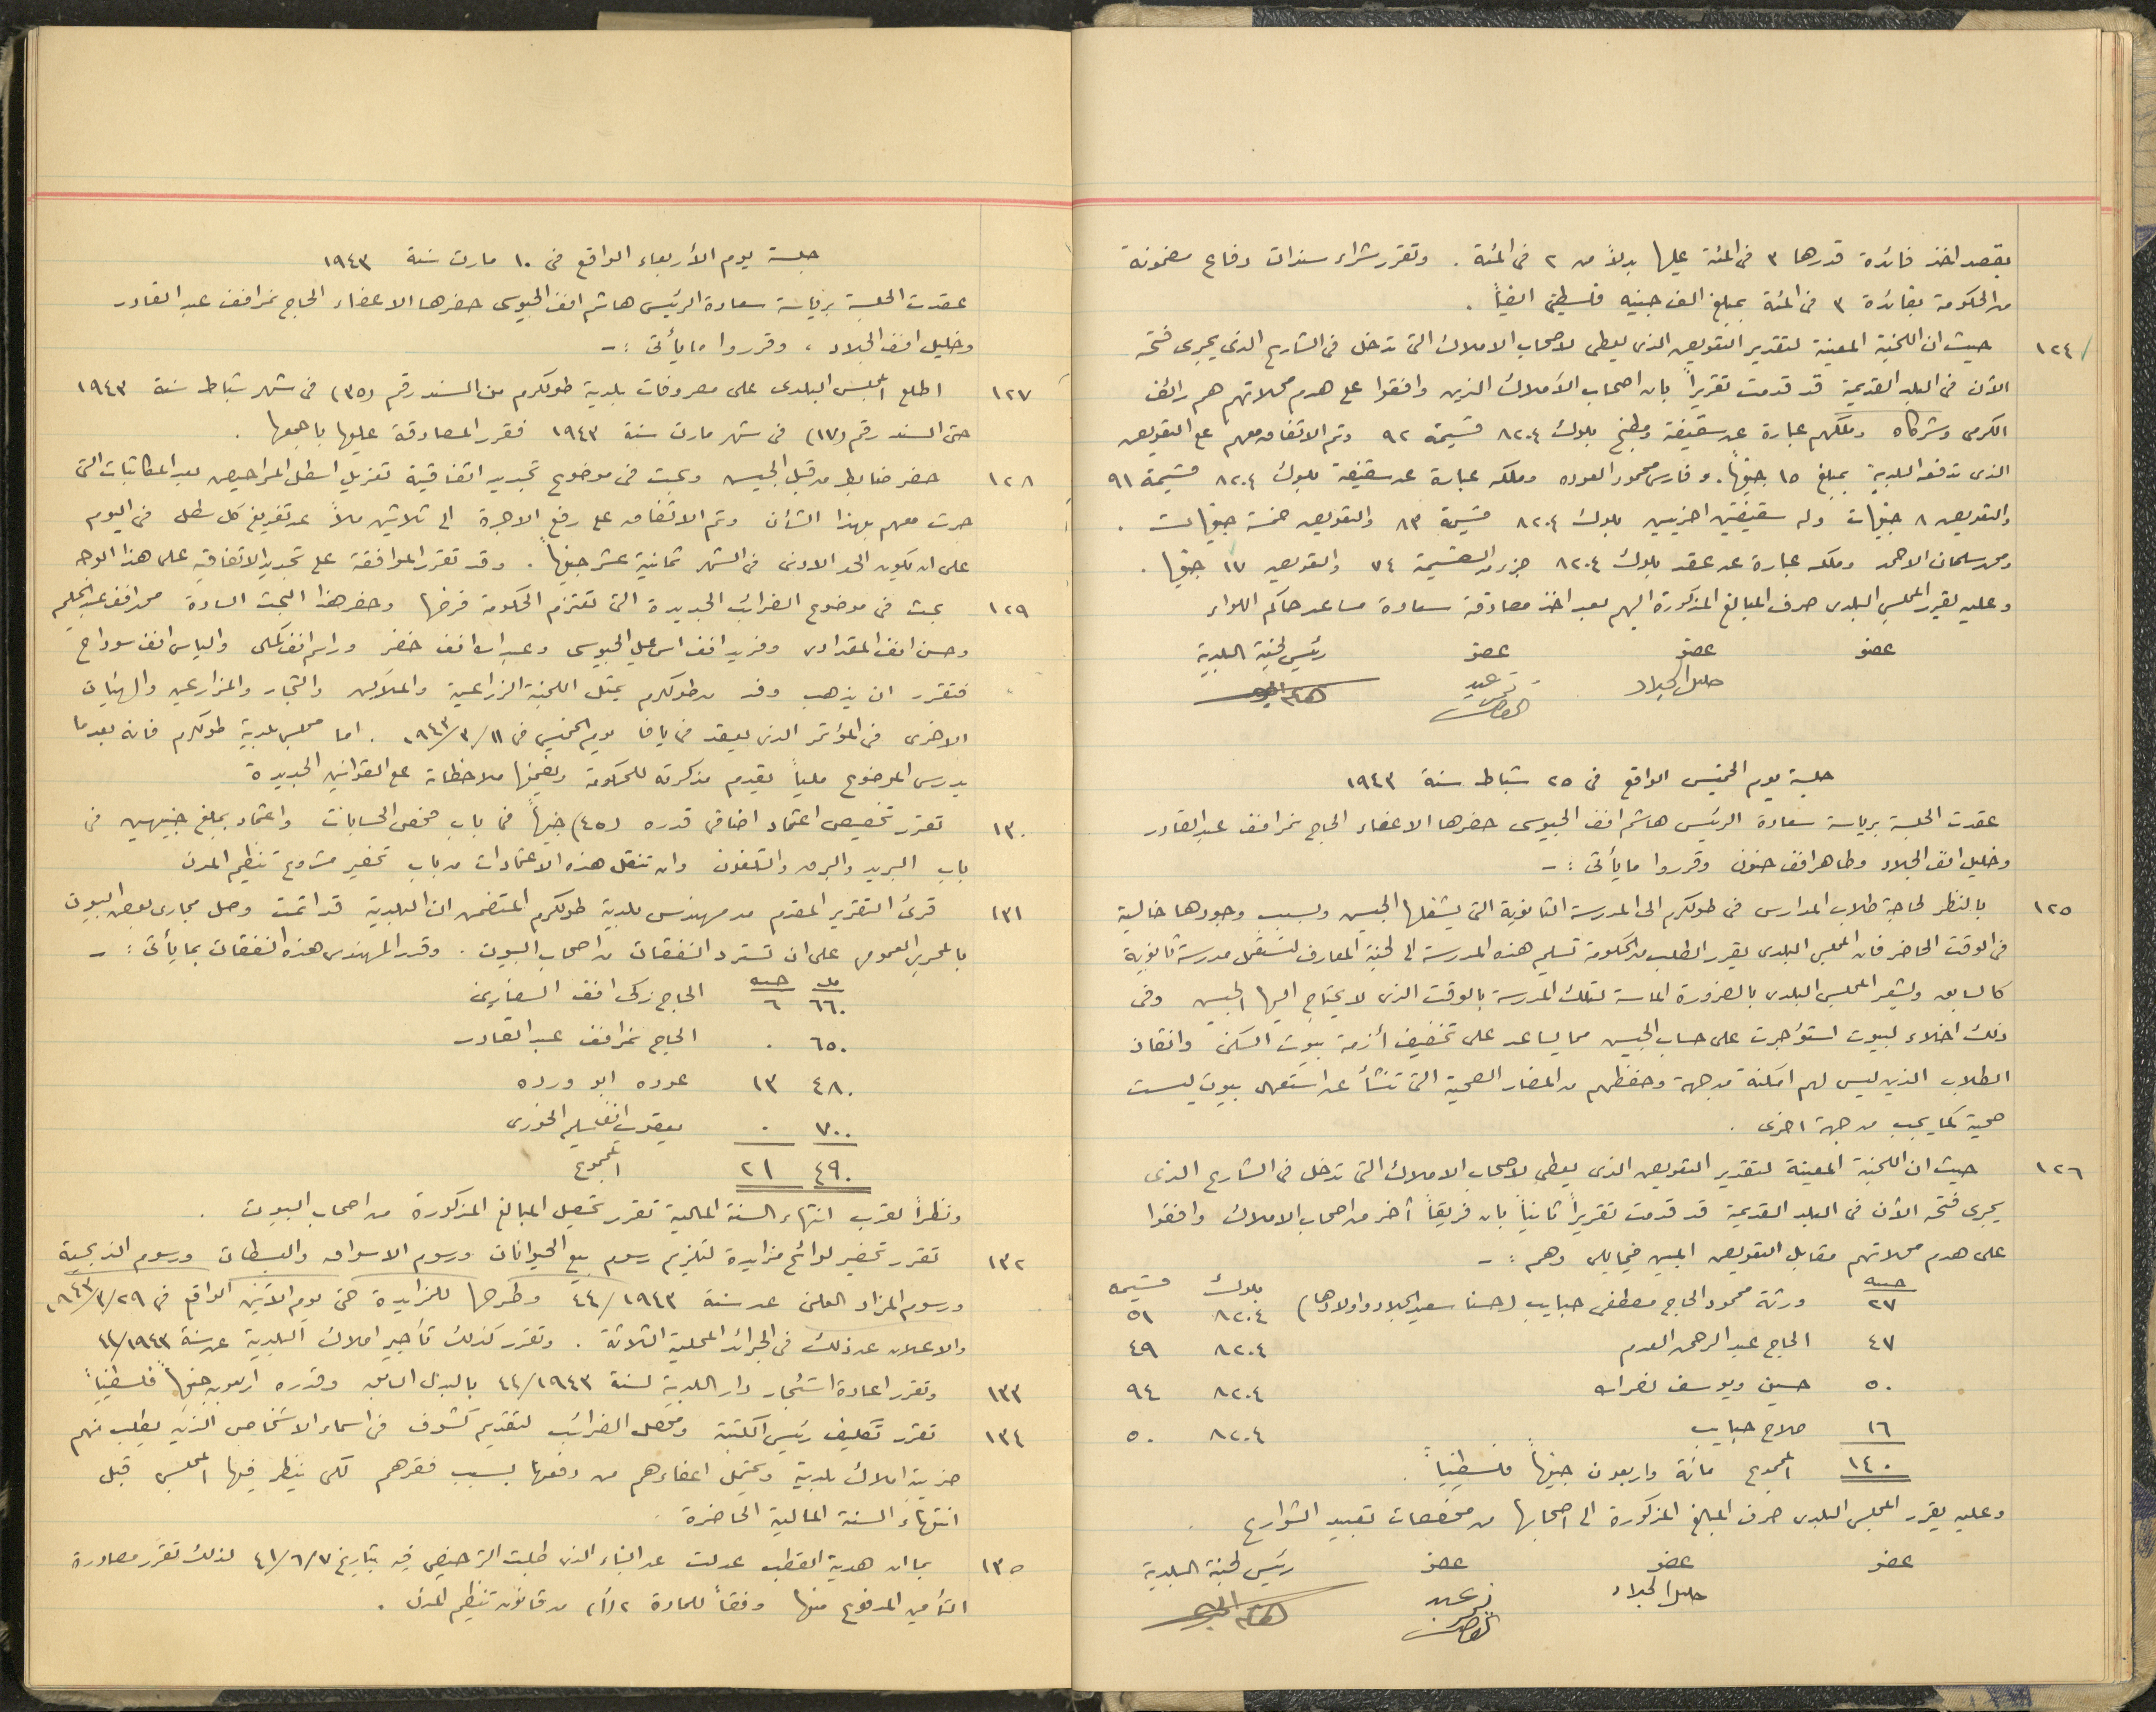 بقصد اخذ فائدة قدرها ٣ في المئة عليها بدلاً من ٢ في المئة . وتقرر شراء سندات دفاع مضمونة
من الحكومة بفائدة ٣ في المئة بمبلغ الف جنيه فلسطيني ايضاً .
١٢٤ حيث ان اللجنة المعينة لتقدير التعويض الذي يعطى لاصحاب الاملاك التي تدخل في الشارع الذي يجرى فتحه
الآن في البلد القديمة قد قدمت تقريراً بان اصحاب الأملاك الذين وافقوا على هدم محلاتهم هم رائف
الكرمي وشركاه وملكهم عبارة عن سقيفة ومطبخ بلوك ٨٢٠٤ قسيمة ٩٢ وتم الاتفاق معهم على التعويض
الذي تدفعه البلدية بمبلغ ١٥ جنيهاً . وفارس محمود العوده وملكه عبارة عن سقيفة بلوك ٨٢٠٤ قسيمة ٩١
والتعويض ٨ جنيهات وله سقيفتين اخريين بلوك ٨٢٠٤ قسيمة ٨٣ والتعويض خمسة جنيهات .
ومحمد سلمان الاحمد وملكه عبارة عن عقد بلوك ٨٢٠٤ جزء من القسيمة ٧٤ والتعويض ١٧ جنيها .
وعليه يقرر المجلس البلدي صرف المبالغ المذكورة اليهم بعد اخذ مصادقة سعادة مساعد حاكم اللواء
عضو عضو عضو رئيس لجنة البلدية
خليل الجلاد نمر عبد القادر هاشم الجيوسي
جلسة يوم الخميس الواقع في ٢٥ شباط سنة ١٩٤٣
عقدت الجلسة برياسة سعادة الرئيس هاشم افندي الجيوسي حضرها الاعضاء الحاج نمر افندي عبد القادر
وخليل افندي الجلاد وطاهر افندي حنون وقرروا ما يأتي :-
١٢٥ بالنظر لحاجة طلاب المدارس في طولكرم الى المدرسة الثانوية التي يشغلها الجيش وبسبب وجودها خالية
في الوقت الحاضر فان المجلس البلدي يقرر الطلب من الحكومة تسليم هذه المدرسة الى لجنة المعارف لتشغل مدرسة ثانوية
كالسابق ويشعر المجلس البلدي بالضرورة الماسة لتلك المدرسة بالوقت الذي لا يحتاج اليها الجيش وفي
ذلك اخلاء لبيوت استؤجرت على حساب الجيش مما يساعد على تخفيف أزمة بيوت السكن وانقاذ
الطلاب الذين ليس لهم امكنة من جهة وحفظهم من المضار الصحية التي تنشأ عن استعمال بيوت ليست
صحية كما يجب من جهة اخرى .
١٢٦ حيث ان اللجنة المعينة لتقدير التعويض الذي يعطى لاصحاب الاملاك التي تدخل في الشارع الذي
يجرى فتحه الآن في البلد القديمة قد قدمت تقريراً ثانياً بان فريقاً آخر من اصحاب الاملاك وافقوا
على هدم محلاتهم مقابل التعويض المبين فيما يلي وهم :-
جنيه بلوك قسيمه
٢٧ ورثة محمود الحاج مصطفى حبايب (حسنا سعيد الجلاد واولادها) ٨٢٠٤ ٥١
٤٧ الحاج عبد الرحمن العدم ٨٢٠٤ ٤٩
٥٠ حسين ويوسف نصرالله ٨٢٠٤ ٩٤
١٦ صلاح حبايب ٨٢٠٤ ٥٠
١٤٠ المجموع مائة واربعون جنيهاً فلسطينياً .
وعليه يقرر المجلس البلدي صرف المبلغ المذكورة الى اصحابها من مخصصات تعبيد الشوارع .
عضو عضو عضو رئيس لجنة البلدية
خليل الجلاد نمر عبد القادر هاشم الجيوسي
جلسة يوم الأربعاء الواقع في ١٠ مارت سنة ١٩٤٣
عقدت الجلسة برياسة سعادة الرئيس هاشم افندي الجيوسي حضرها الاعضاء الحاج نمر افندي عبد القادر
وخليل افندي الجلاد ، وقرروا ما يأتي :-
١٢٧ اطلع المجلس البلدي على مصروفات بلدية طولكرم من السند رقم (٣٥) في شهر شباط سنة ١٩٤٣
حتى السند رقم (١٧) في شهر مارت سنة ١٩٤٣ فقرر المصادقة عليها باجمعها .
١٢٨ حضر ضابط من قبل الجيش وبحث في موضوع تجديد اتفاقية تنزيل اسطل المراحيض بعد المكاتبات التي
جرت معهم بهذا الشأن وتم الاتفاق على رفع الاجرة الى ثلاثين ملاً عن تفريغ كل سطل في اليوم
على ان يكون الحد الادنى في الشهر ثمانية عشر جنيهاً . وقد تقرر الموافقة على تجديد الاتفاقية على هذا الوجه
١٢٩ بحث في موضوع الضرائب الجديدة التي تعتزم الحكومة فرضها وحضر هذا البحث السادة محمد افندي عبد الحليم
وحسن افندي المقدادي وفريد افندي اسماعيل الجيوسي وعبدالله افندي خضر وراسم افندي كمال والياس افندي سوداح
فتقرر ان يذهب وفد من طولكرم يمثل اللجنة الزراعية والملاكين والتجار والمزارعين والهيئات
الاخرى في المؤتمر الذي يعقد في يافا يوم الخميس في ١٩٤٣/٣/١١ . اما مجلس بلدية طولكرم فانه بعد ما
يدرس الموضوع ملياً يقدم مذكرته للحكومة ويضمنها ملاحظاته على القوانين الجديدة
١٣٠ تقرر تخصيص اعتماد اضافي قدره (٤٥) جنيهاً في باب فحص الحسابات واعتماد بمبلغ جنيهين في
باب البريد والبرق والتلفون وان تنقل هذه الاعتمادات من باب تحضير مشروع تنظيم المدن
١٣١ قرئ التقرير المقدم من مهندس بلدية طولكرم المتضمن ان البلدية قد اتمت وصل مجارى بعض البيوت
بالمجرى العمومي على ان تسترد النفقات من اصحاب البيوت . وقدر المهندس هذه النفقات بما يأتي :-
مل جنيه
٦٦٠ ٦ الحاج زكي افندي السفاريني
٦٥٠ ٠ الحاج نمر افندي عبد القادر
٤٨٠ ١٣ عوده ابو ورده
٧٠٠ ٠ يعقوب افندي سليم الخوري
٤٩٠ ٢١ المجموع
ونظراً لقرب انتهاء السنة المالية تقرر تحصيل المبالغ المذكورة من اصحاب البيوت .
١٣٢ تقرر تحضير لوائح مزايدة لتلزيم رسوم بيع الحيوانات ورسوم الاسواق والبسطات ورسوم الذبحية
ورسوم المزاد العلني عن سنة ٤٤/١٩٤٣ وطرحها للمزايدة حتى يوم الاثنين الواقع في ١٩٤٣/٣/٢٩
والاعلان عن ذلك في الجرائد المحلية الثلاثة . وتقرر كذلك تأجير املاك البلدية عن سنة ٤٤/١٩٤٣
١٣٣ وتقرر اعادة استئجار دار البلدية لسنة ٤٤/١٩٤٣ بالبدل السابق وقدره اربعون جنيهاً فلسطينياً
١٣٤ تقرر تكليف رئيس الكتبة ومحصل الضرائب لتقديم كشوف في اسماء الاشخاص الذين يطلب منهم
ضريبة املاك بلدية ويحتمل اعفاءهم من دفعها بسبب فقرهم لكي ينظر فيها المجلس قبل
انتهاء السنة المالية الحاضرة
١٣٥ بما ان هدية القطب عدلت عن البناء الذي طلبت الترخيص فيه بتاريخ ٤١/٦/٧ لذلك تقرر مصادرة
التأمين المدفوع منها وفقاً للمادة ٢(أ) من قانون تنظيم المدن .